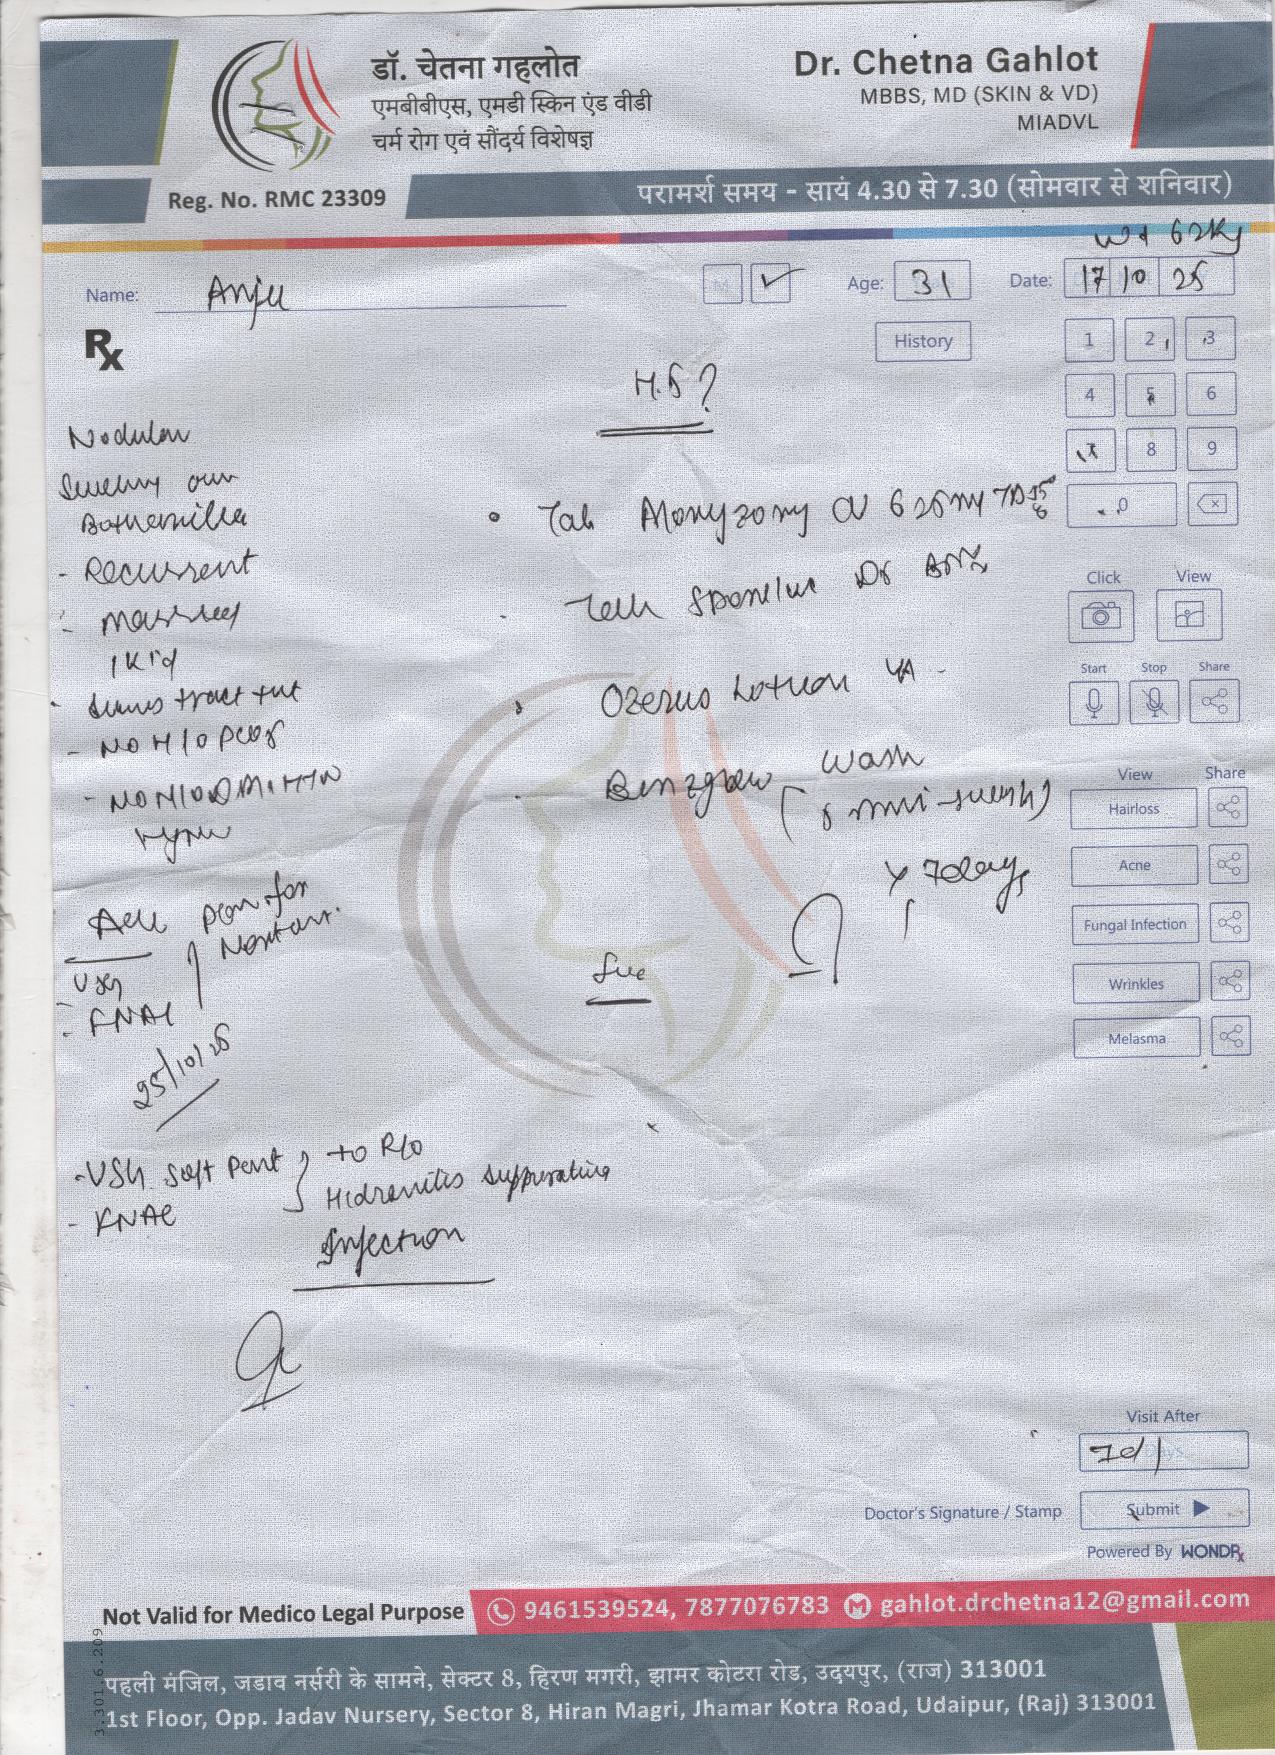 डॉ. चेतना गहलोत
एमबीबीएस, एमडी स्किन एंड वीडी
चर्म रोग एवं सौंदर्य विशेषज्ञ
Dr. Chetna Gahlot
MBBS, MD (SKIN & VD)
MIADVL
Reg. No. RMC 23309
परामर्श समय - सायं 4.30 से 7.30 (सोमवार से शनिवार)
Wt 62Kg
Name: Anju M ✓ Age: 31 Date: 17 10 25
Rx
History
1 2 3
4 5 6
7 8 9
0
H.S?
Nodular
Swelling over
Both axilla
- Recurrent
- Married
1 Kid
- Sinus tract
- NO H/O PCOS
- NO H/O DM, HTN
Adv Plan for
USG
- FNAC
25/10/25
• Tab CV 625mg
Tab
Lotion
Wash
x 7 days
Click View
Start Stop Share
View Share
Hairloss
Acne
Fungal Infection
Wrinkles
Melasma
- USG Soft Part } to R/O
- FNAC Hidrenitis suppurativa
Injection
Visit After
7d
Doctor's Signature / Stamp Submit
Powered By WONDRx
Not Valid for Medico Legal Purpose 9461539524, 7877076783 gahlot.drchetna12@gmail.com
3.301.6.209
पहली मंजिल, जडाव नर्सरी के सामने, सेक्टर 8, हिरण मगरी, झामर कोटरा रोड, उदयपुर, (राज) 313001
1st Floor, Opp. Jadav Nursery, Sector 8, Hiran Magri, Jhamar Kotra Road, Udaipur, (Raj) 313001